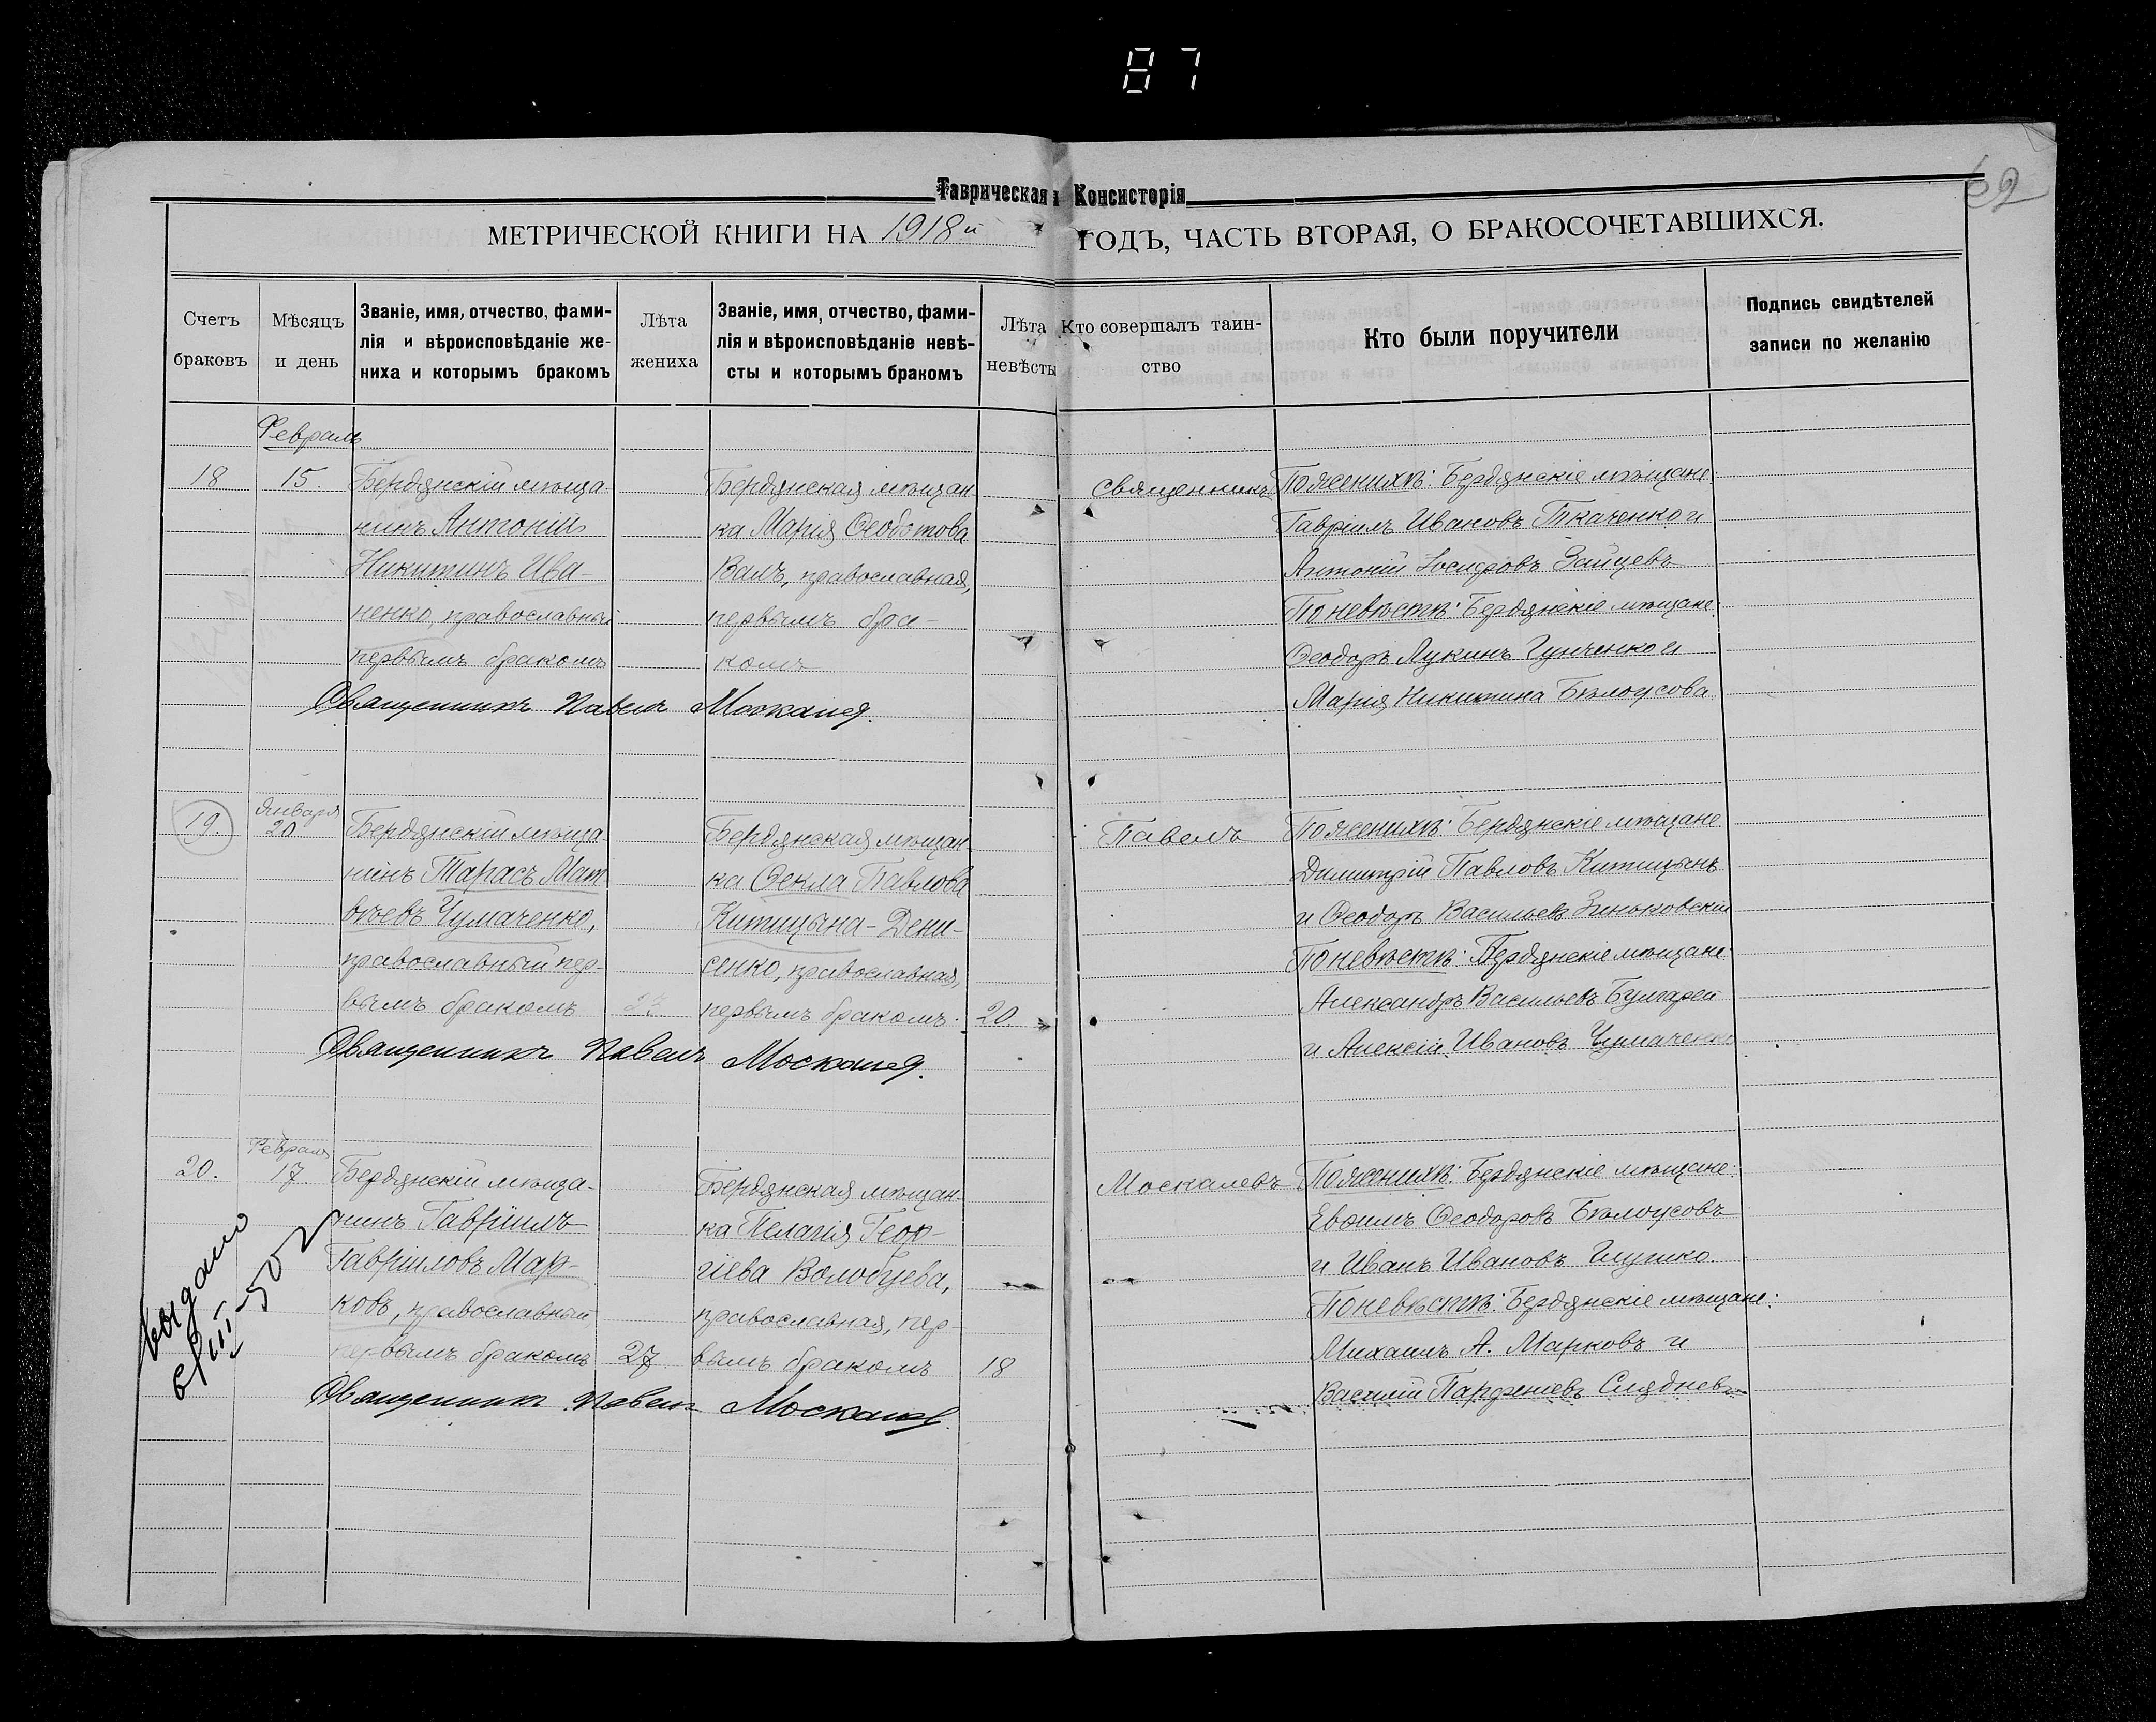 87
62
Таврическая Консисторія
МЕТРИЧЕСКОЙ КНИГИ НА 1918й ГОДЪ, ЧАСТЬ ВТОРАЯ, О БРАКОСОЧЕТАВШИХСЯ.
Счетъ браковъ
Мѣсяцъ и день
Званіе, имя, отчество, фами-
лія и вѣроисповѣданіе же-
ниха и которымъ бракомъ
Лѣта жениха
Званіе, имя, отчество, фами-
лія и вѣроисповѣданіе невѣ-
сты и которымъ бракомъ
Лѣта невѣсты
Кто совершалъ таин-
ство
Кто были поручители
Подпись свидѣтелей
записи по желанію
Февраль
18
15.
Бердянскій мѣща-
нинъ Антоній
Никитинъ Ива-
ненко, православный
первымъ бракомъ
Бердянская мѣщан-
ка Марія Ѳеодотова
Валъ, православная,
первымъ бра-
комъ
Священникъ
По женихѣ: Бердянскіе мѣщане:
Гавріилъ Ивановъ Ткаченко и
Антоній Зайцевъ
По невѣстѣ: Бердянскіе мѣщане:
Ѳеодоръ Лукинъ и
Марія Никитина Бѣлоусова
Священникъ Павелъ Москалев
19.
Января
20
Бердянскій мѣща-
нинъ Тарасъ Мат
вѣевъ Чумаченко,
православный пер-
вымъ бракомъ
Бердянская мѣщан-
ка Ѳекла Павлова
Китицына-Дени-
сенко, православная,
первымъ бракомъ.
20
Павелъ
По женихѣ: Бердянскіе мѣщане
Димитрій Павловъ Китицынъ
и Ѳеодоръ Васильевъ Зиньковскій
По невѣстѣ: Бердянскіе мѣщане:
Александръ Васильевъ Булгарей
и Алексій Ивановъ Чумаченко
Священникъ Павелъ Москалев
20.
Февраля
17.
Бердянскій мѣща-
нинъ Гавріилъ
Гавріиловъ Мар-
ковъ, православный
первымъ бракомъ
27
Бердянская мѣщан-
ка Пелагія Геор-
гіева Волобуева,
православная, пер-
вымъ бракомъ
18
Москалевъ
По женихѣ: Бердянскіе мѣщане:
Евѳимъ Ѳеодоровъ Бѣлоусовъ
и Иванъ Ивановъ Глушко.
По невѣстѣ: Бердянскіе мѣщане:
Михаилъ А. Марковъ и
Василій Парѳеніевъ
Священникъ Павелъ Москалев
выдано
6/III-50 г